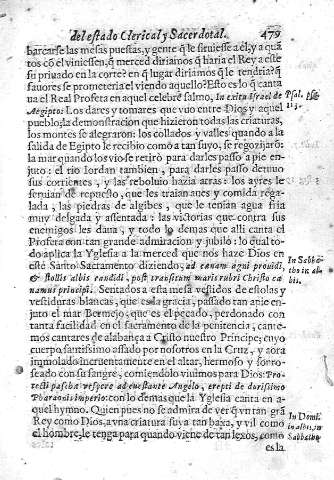 del estado Clerical y Sacerdotal. 479
barcarse las mesas puestas, y gente q̃ le siruiesse a él, y a quã
tos cõ el viniessen, q̃ merced diriamos q̃ haria el Rey a este
su priuado en la corte? en q̃ lugar diriamos q̃ le tendria? q̃
fauores se prometeria el viendo aquello? Esto es lo q̃ canta
ua el Real Profeta en aquel celebre salmo, In exitu Israel de
Psal.
113.
Aegipto: Los dares y tomares que vuo entre Dios y aquel
pueblo; la demonstracion que hizieron todas las criaturas,
los montes se alegraron: los collados y valles quando a la
salida de Egipto le recibio como a tan suyo, se regozijarõ:
la mar quando los vio se retirò para darles passo a pie en-
juto: el rio Iordan tambien, para darles passo detuuo
sus corrientes, y las reboluio hazia atras: los ayres le
seruian de repuesto, que les traian aues y comida rega-
lada, las piedras de algibes, que le tenian agua fria
muy delgada y assentada: las victorias que contra sus
enemigos les daua, y todo lo demas que alli canta el
Profeta con tan grande admiracion y jubilo: lo qual to-
do aplica la Yglesia a la merced que nos haze Dios en
este Sãto Sacramento diziendo, ad cœnam agni prouidi,
& stollis albis candidi, post transitum maris rubri Christo ca
namus principi. Sentados a esta mesa vestidos de estolas y
In Sabba
tho in al-
bis.
vestiduras blancas, que es la gracia, passado tan a pie en-
juto el mar Bermejo, que es el pecado, perdonado con
tanta facilidad en el sacramento de la penitencia, cante-
mos cantares de alabãça a Cristo nuestro Principe; cuyo
cuerpo santissimo assado por nosotros en la Cruz, y aora
inmolado incruentamente en el altar, hermoso y sonro-
seado con su sangre, comiendolo viuimos para Dios: Pro-
tecti pascha vespere a deuastante Angelo, erepti de durissimo
Pharaonis imperio: con lo demas que la Yglesia canta en a-
quel hymno. Quien pues no se admira de ver q̃ vn tan grã
Rey como Dios, a vna criatura suya tan baxa, y vil como
el hombre, le tenga para quando viene de tan lexos, como
In Domi.
in albis, in
Sabbatho
es la